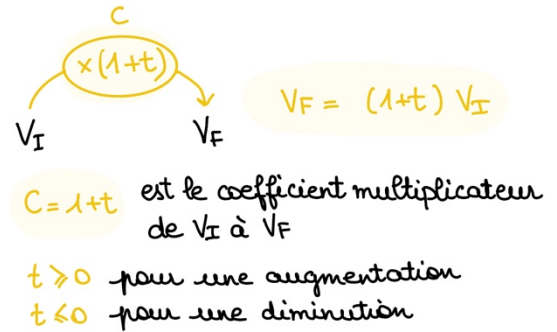 C
×(1+t)
V_I V_F
V_F = (1+t) V_I
C = 1+t est le coefficient multiplicateur
de V_I à V_F
t ⩾ 0 pour une augmentation
t ⩽ 0 pour une diminution